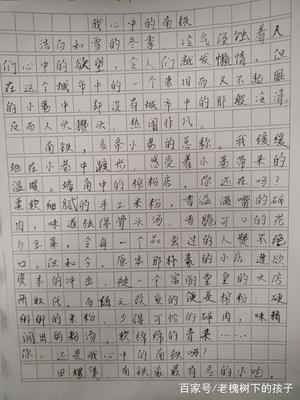 我心中的南铁
洁白如雪的冬季，冷气浸蚀着人
们心中的欲望，令人们越发懒惰，但
在这个城市中的一个老旧而又不起眼
的小巷中，却没有城市中的那般冷清，
反而人头攒头，热闹非凡
南铁，多条小巷的总称。我缓缓
地在小巷中踱步，感受着小巷带来的
温暖。墙角中的榨粉店，你还在吗？
柔软细腻的手工米粉，香溢满嘴的碎
肉，味道独得骨头汤，香脆可口的花
生，令每一个品尝过的人赞不绝
口。但如今，原本那朴素的小店遭欲
资本的冲击，被一个富丽堂皇的大店
所取代。而随之改变的便是榨粉：硬
的米粉，少得可怜的碎肉，味精
调出的粉汤，软绵绵的青菜……
你，还是我心中的南铁吗？
田螺煲，南铁最有名的小吃，
百家号/老槐树下的孩子